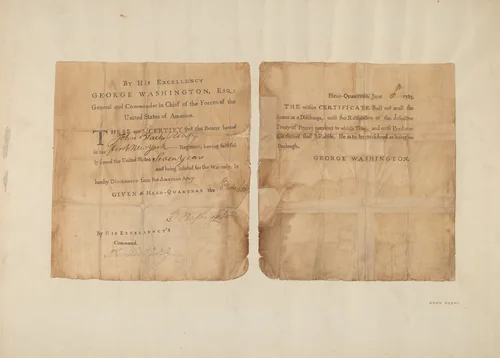 By His EXCELLENCY
GEORGE WASHINGTON, Esq;
General and Commander in Chief of the Forces of the
United States of America.
THESE are to CERTIFY that the Bearer hereof
in the First New York Regiment, having faithful-
ly served the United States Seven years
and being inlisted for the War only, is
hereby DISCHARGED from the American Army.
GIVEN at HEAD-QUARTERS the
G Washington
By HIS EXCELLENCY'S
Command,
HEAD-QUARTERS, June 1783.
THE within CERTIFICATE shall not avail the
Bearer as a Discharge, until the Ratification of the definitive
Treaty of Peace; previous to which Time, and until Proclama-
tion thereof shall be made, He is to be considered as being on
Furlough.
GEORGE WASHINGTON.